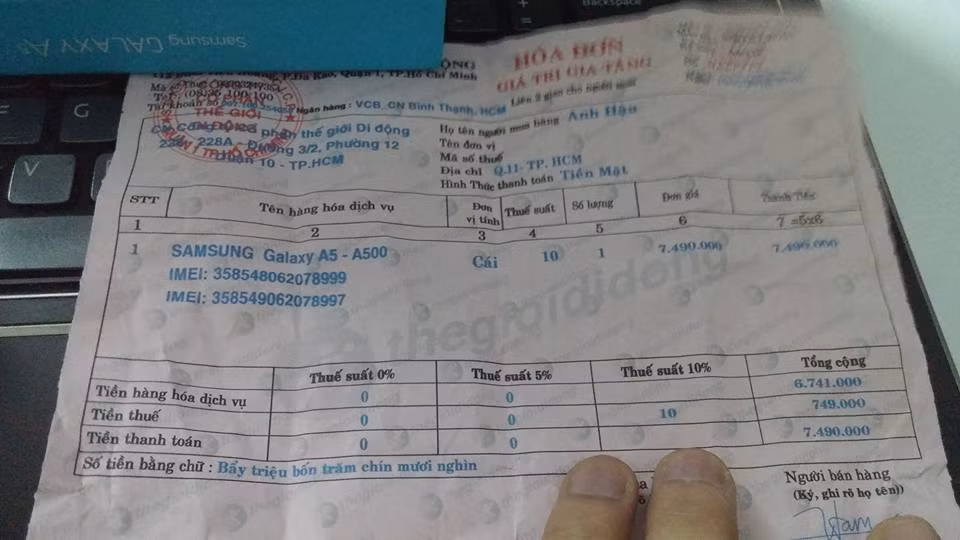 Samsung GALAXY A5
Backspace
G
V
ỘNG
HÓA ĐƠN
GIÁ TRỊ GIA TĂNG
Liên 2 giao cho người mua
P.Đa Kao, Quận 1, TP.Hồ Chí Minh
Mã số Thuế
Tài khoản số
Ngân hàng : VCB_CN Bình Thạnh, HCM
THẾ GIỚI
DI ĐỘNG
cổ phần thế giới Di động
228A - Đường 3/2, Phường 12
Quận 10 - TP.HCM
Họ tên người mua hàng Anh Hậu
Tên đơn vị
Mã số thuế
Địa chỉ Q.11- TP. HCM
Hình Thức thanh toán Tiền Mặt
STT Tên hàng hóa dịch vụ Đơn vị tính Thuế suất Số lượng Đơn giá Thành Tiền
1 2 3 4 5 6 7 =5x6
1 SAMSUNG Galaxy A5 - A500 Cái 10 1 7.490.000 7.490.000
IMEI: 358548062078999
IMEI: 358549062078997
thegioididong
Thuế suất 0% Thuế suất 5% Thuế suất 10% Tổng cộng
Tiền hàng hóa dịch vụ 0 0 6.741.000
Tiền thuế 0 0 10 749.000
Tiền thanh toán 0 0 7.490.000
Số tiền bằng chữ : Bẩy triệu bốn trăm chín mươi nghìn
Người bán hàng
(Ký, ghi rõ họ tên))